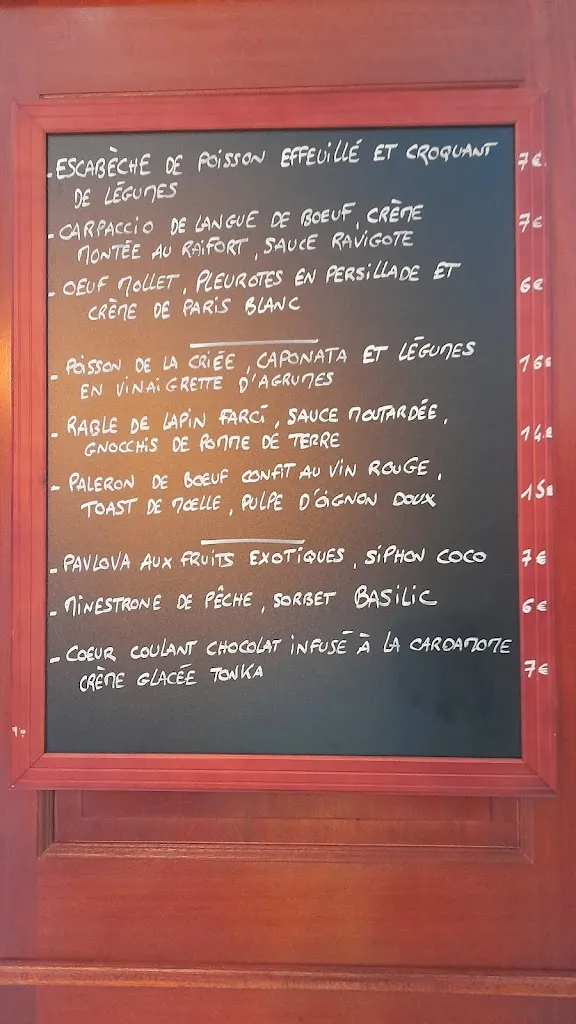 - ESCABÈCHE DE POISSON EFFEUILLÉ ET CROQUANT 7€.
DE LÉGUMES
- CARPACCIO DE LANGUE DE BOEUF, CRÈME 7€
MONTÉE AU RAIFORT, SAUCE RAVIGOTE
- OEUF MOLLET, PLEUROTES EN PERSILLADE ET 6€
CRÈME DE PARIS BLANC
- POISSON DE LA CRIÉE, CAPONATA ET LÉGUMES 16€
EN VINAIGRETTE D'AGRUMES
- RABLE DE LAPIN FARCI, SAUCE MOUTARDÉE, 14€
GNOCCHIS DE POMME DE TERRE
- PALERON DE BOEUF CONFIT AU VIN ROUGE, 15€
TOAST DE MOELLE, PULPE D'OIGNON DOUX
- PAVLOVA AUX FRUITS EXOTIQUES, SIPHON COCO 7€
- MINESTRONE DE PÊCHE, SORBET BASILIC 6€
- COEUR COULANT CHOCOLAT INFUSÉ À LA CARDAMOME
CRÈME GLACÉE TONKA 7€